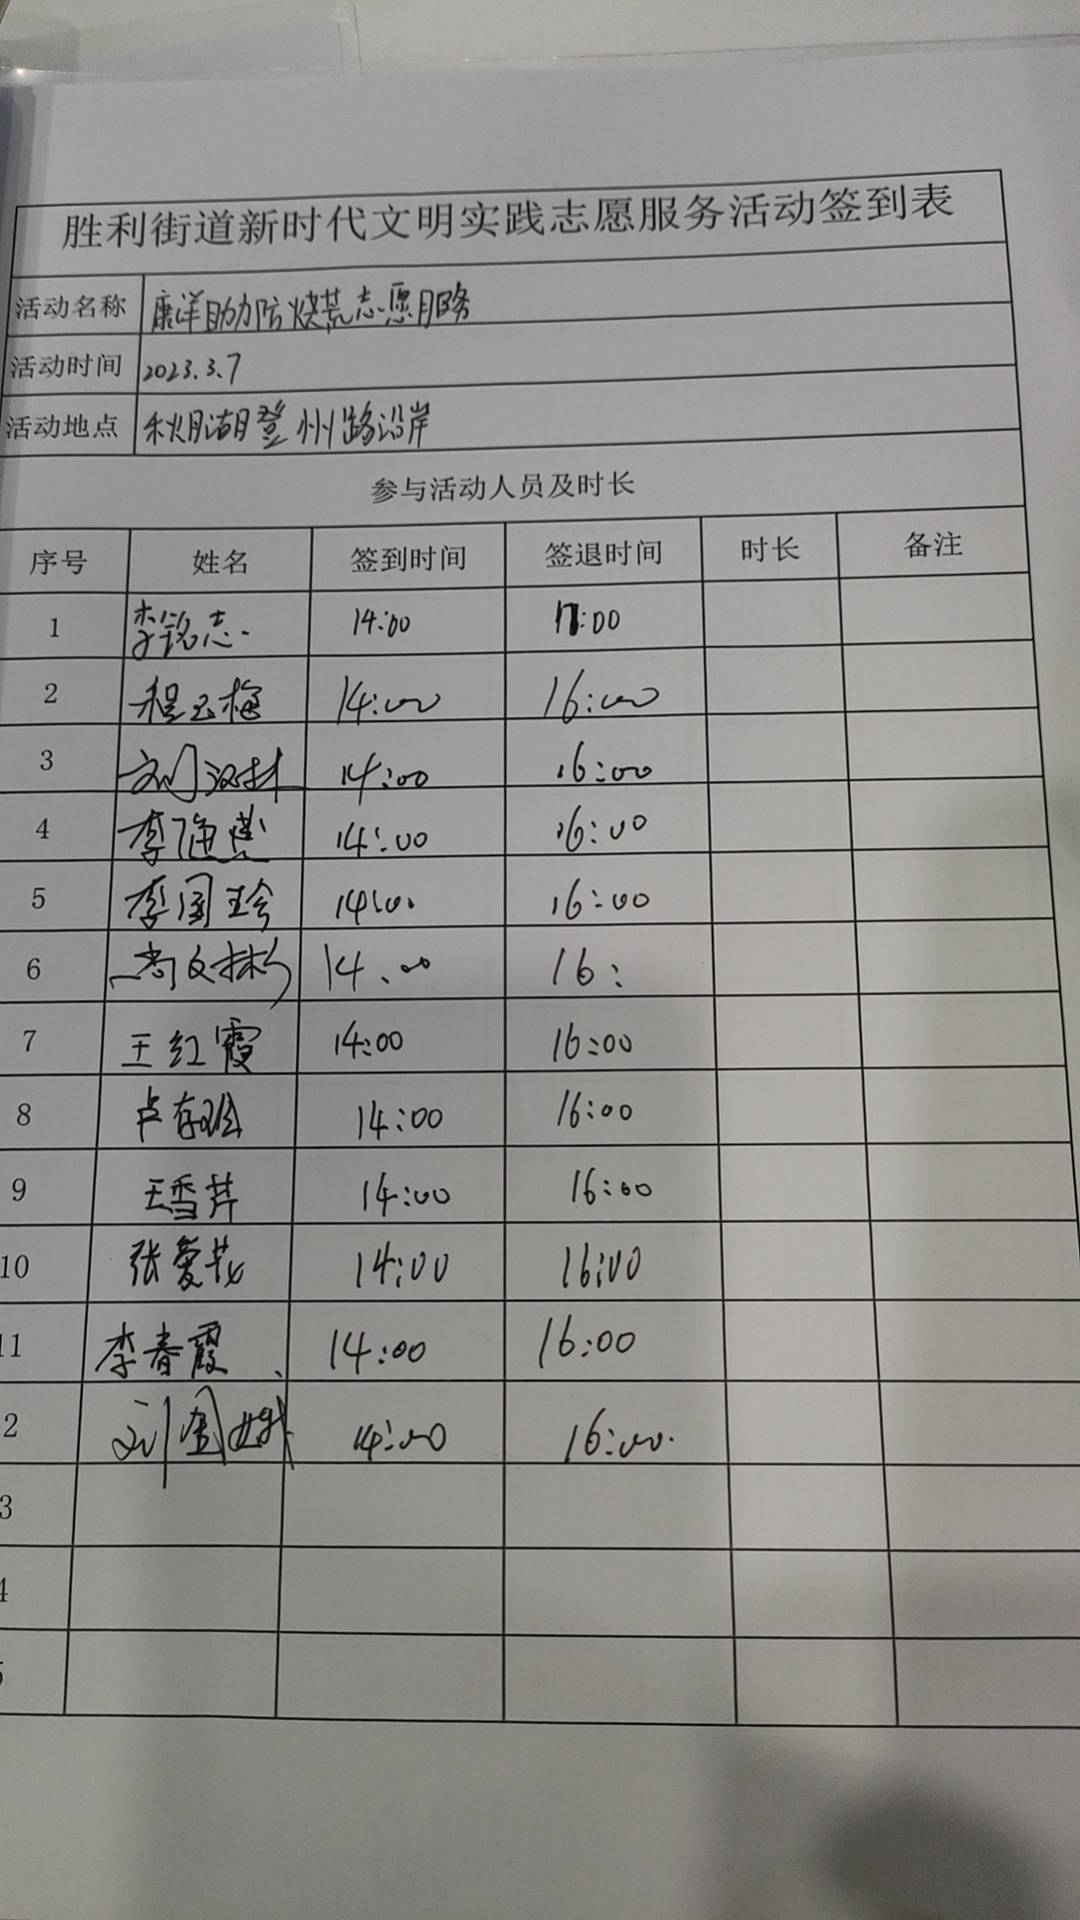 胜利街道新时代文明实践志愿服务活动签到表
活动名称 康洋助力防烧荒志愿服务
活动时间 2023.3.7
活动地点 秋月湖登州路沿岸
参与活动人员及时长
序号 姓名 签到时间 签退时间 时长 备注
1 李铭志 14:00 17:00
2 程玉梅 14:00 16:00
3 刘汉林 14:00 16:00
4 李海燕 14:00 16:00
5 李国珍 14:00 16:00
6 尚文彬 14:00 16:
7 王红霞 14:00 16:00
8 卢存 14:00 16:00
9 王雪芹 14:00 16:00
10 张爱花 14:00 16:00
11 李春霞 14:00 16:00
2 刘国娥 14:00 16:00
3
4
5